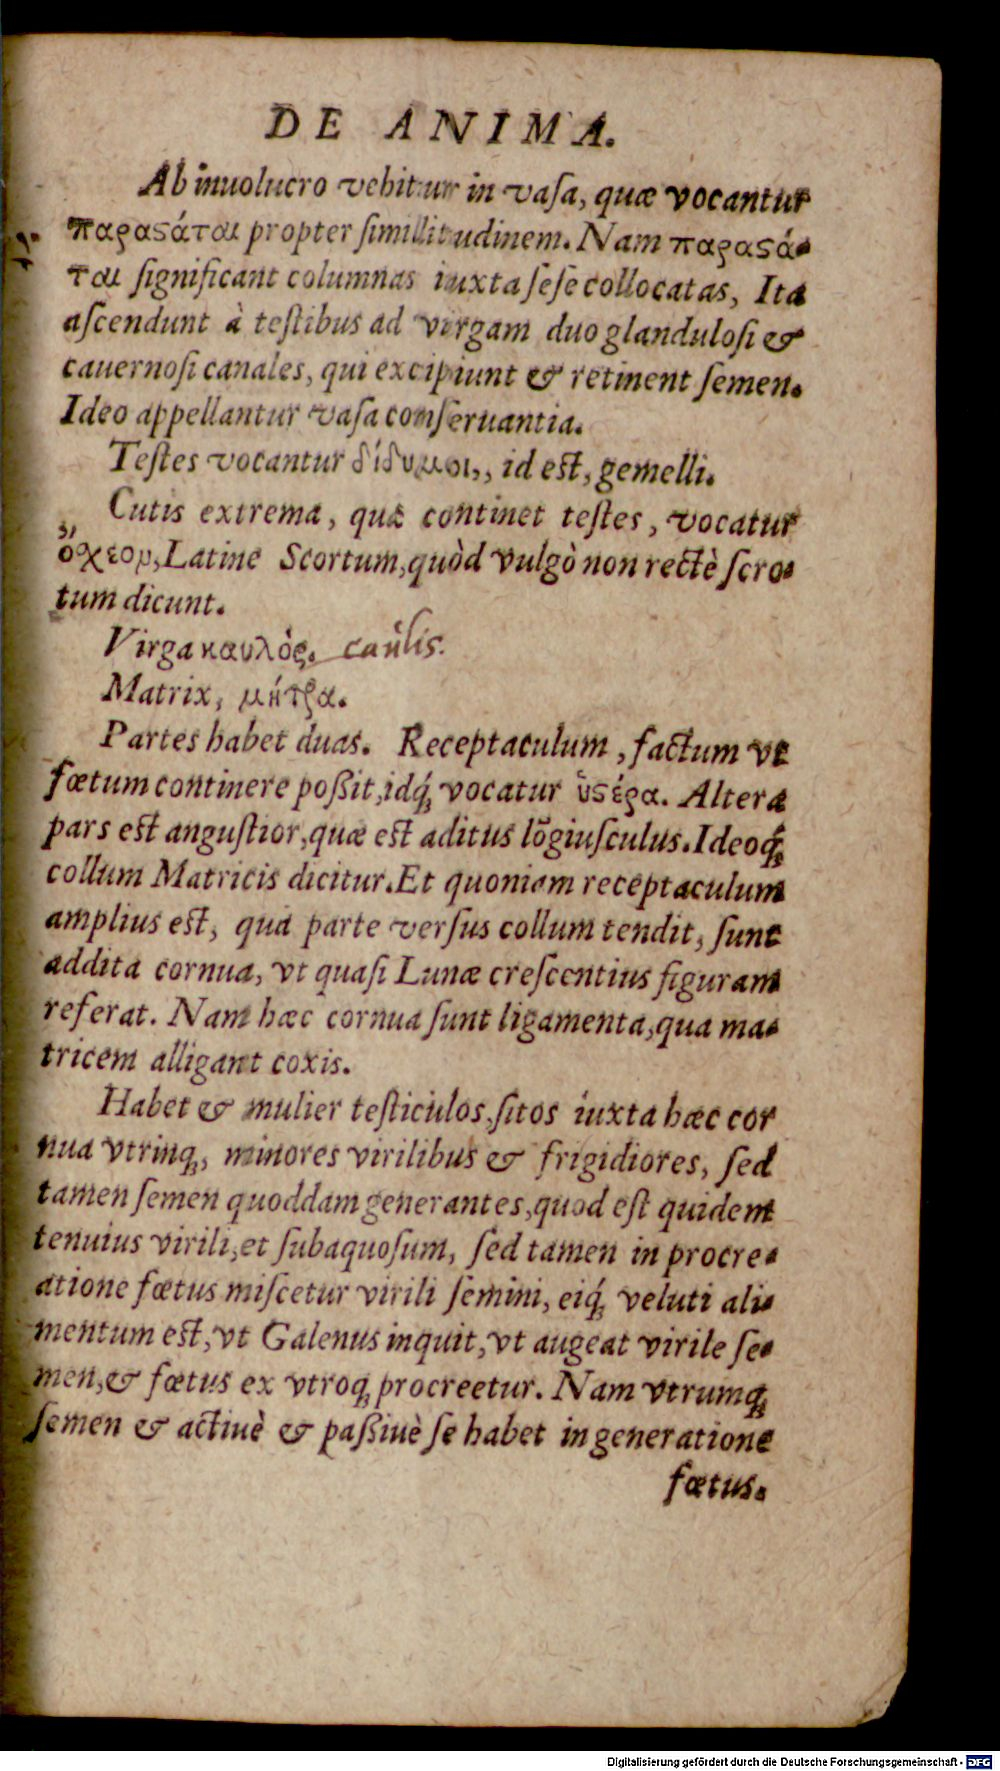 DE ANIMA.
Ab inuolucro vehitur in vasa, quæ vocantur
παραϛάται propter simillitudinem. Nam παραϛά-
ται significant columnas iuxta sese collocatas, Ita
ascendunt à testibus ad virgam duo glandulosi &
cauernosi canales, qui excipiunt & retinent semen.
Ideo appellantur vasa conseruantia.
Testes vocantur δίδυμοι,, id est, gemelli.
Cutis extrema, quæ continet testes, vocatur
ὄχεον, Latine Scortum, quòd vulgò non rectè scro-
tum dicunt.
Virga καυλὸς. caulis.
Matrix, μήτρα.
Partes habet duas. Receptaculum, factum vt
fœtum continere poßit, idq́; vocatur ὑϛέρα. Altera
pars est angustior, quæ est aditus lōgiusculus. Ideoq́;
collum Matricis dicitur. Et quoniam receptaculum
amplius est, qua parte versus collum tendit, sunt
addita cornua, vt quasi Lunæ crescentius figuram
referat. Nam hæc cornua sunt ligamenta, qua ma-
tricem alligant coxis.
Habet & mulier testiculos, sitos iuxta hæc cor
nua vtrinq;, minores virilibus & frigidiores, sed
tamen semen quoddam generantes, quod est quidem
tenuius virili, et subaquosum, sed tamen in procre-
atione fœtus miscetur virili semini, eiq́; veluti ali-
mentum est, vt Galenus inquit, vt augeat virile se-
men, & fœtus ex vtroq; procreetur. Nam vtrumq;
semen & actiuè & paßiuè se habet in generatione
fœtus.
Digitalisierung gefördert durch die Deutsche Forschungsgemeinschaft - DFG